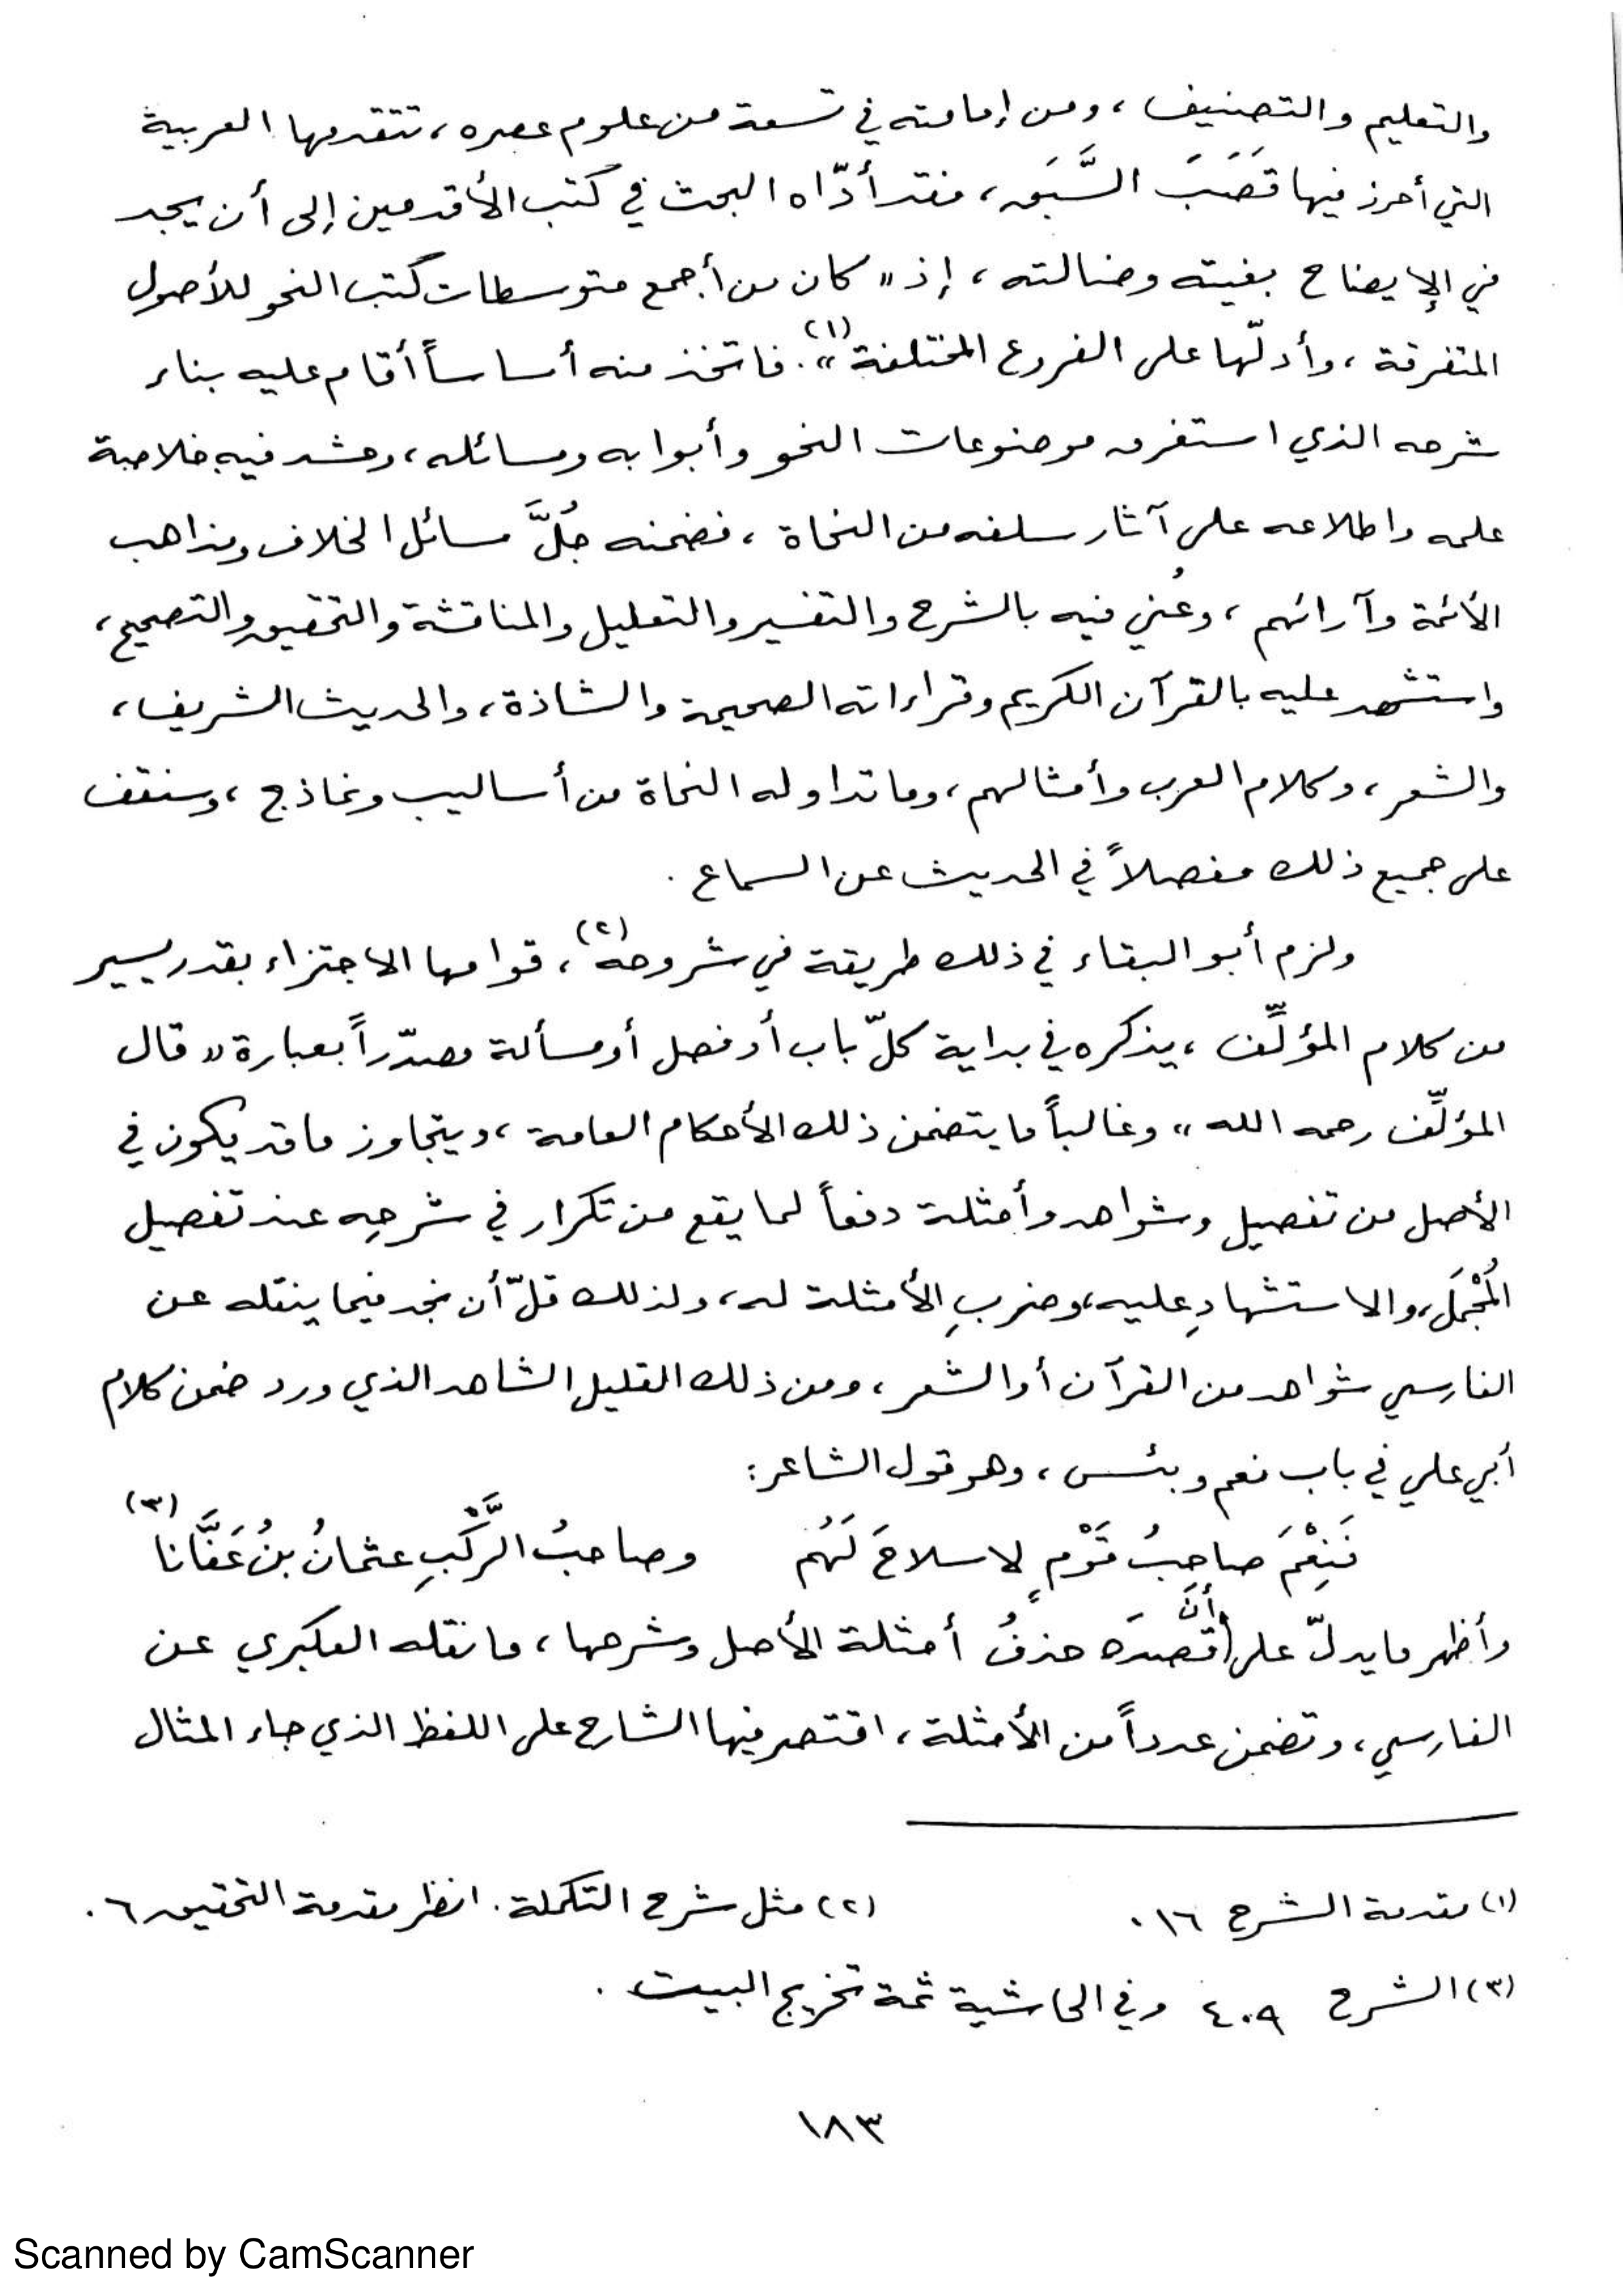 والتعليم والتصنيف ، ومن إمامته في تسعة من علوم عصره ، تتقدمها العربية
التي أحرز فيها قَصَبَ السَّبَق ، فقد أدّاه البحث في كتب الأقدمين إلى أن يجد
في الإيضاح بغيته وضالته ، إذ « كان من أجمع متوسطات كتب النحو للأصول
المتفرقة ، وأدلّها على الفروع المختلفة »(١). فاتخذ منه أساساً أقام عليه بناء
شرحه الذي استغرق موضوعات النحو وأبوابه ومسائله ، وحشد فيه خلاصة
علمه واطلاعه على آثار سلفه من النحاة ، فضمنه جُلَّ مسائل الخلاف ومذاهب
الأئمة وآرائهم ، وعُني فيه بالشرح والتفسير والتعليل والمناقشة والتحقيق والتصحيح ،
واستشهد عليه بالقرآن الكريم وقراءاته الصحيحة والشاذة ، والحديث الشريف ،
والشعر ، وكلام العرب وأمثالهم ، وما تداوله النحاة من أساليب ونماذج ، وسنقف
على جميع ذلك مفصلاً في الحديث عن السماع .
ولزم أبو البقاء في ذلك طريقة في شروحه(٢) ، قوامها الاجتزاء بقدر يسير
من كلام المؤلِّف ، يذكره في بداية كلّ باب أو فصل أو مسألة مصدّراً بعبارة « قال
المؤلِّف رحمه الله » وغالباً ما يتضمن ذلك الأحكام العامة ، ويتجاوز ما قد يكون في
الأصل من تفصيل وشواهد وأمثلة دفعاً لما يقع من تكرار في شرحِه عند تفصيل
المُجْمَل ، والاستشهادِ عليه ، وضربِ الأمثلة له ، ولذلك قلّ أن نجد فيما ينقله عن
الفارسي شواهد من القرآن أو الشعر ، ومن ذلك القليل الشاهد الذي ورد ضمن كلام
أبي علي في باب نعم وبئس ، وهو قول الشاعر :
فَنِعْمَ صاحِبُ قَوْمٍ لا سلاحَ لَهُم وصاحبُ الرَّكْبِ عثمانُ بنُ عَفَّانا(٣)
وأظهر ما يدلّ على أنَّ قصدَه حذفُ أمثلة الأصل وشرحها ، ما نقله العكبري عن
الفارسي ، وتضمن عدداً من الأمثلة ، اقتصر فيها الشارح على اللفظ الذي جاء المثال
(١) مقدمة الشرح ١٦ . (٢) مثل شرح التكملة . انظر مقدمة التحقيق ٦ .
(٣) الشرح ٤٠٩ وفي الحاشية ثمة تخريج البيت .
١٨٣
Scanned by CamScanner